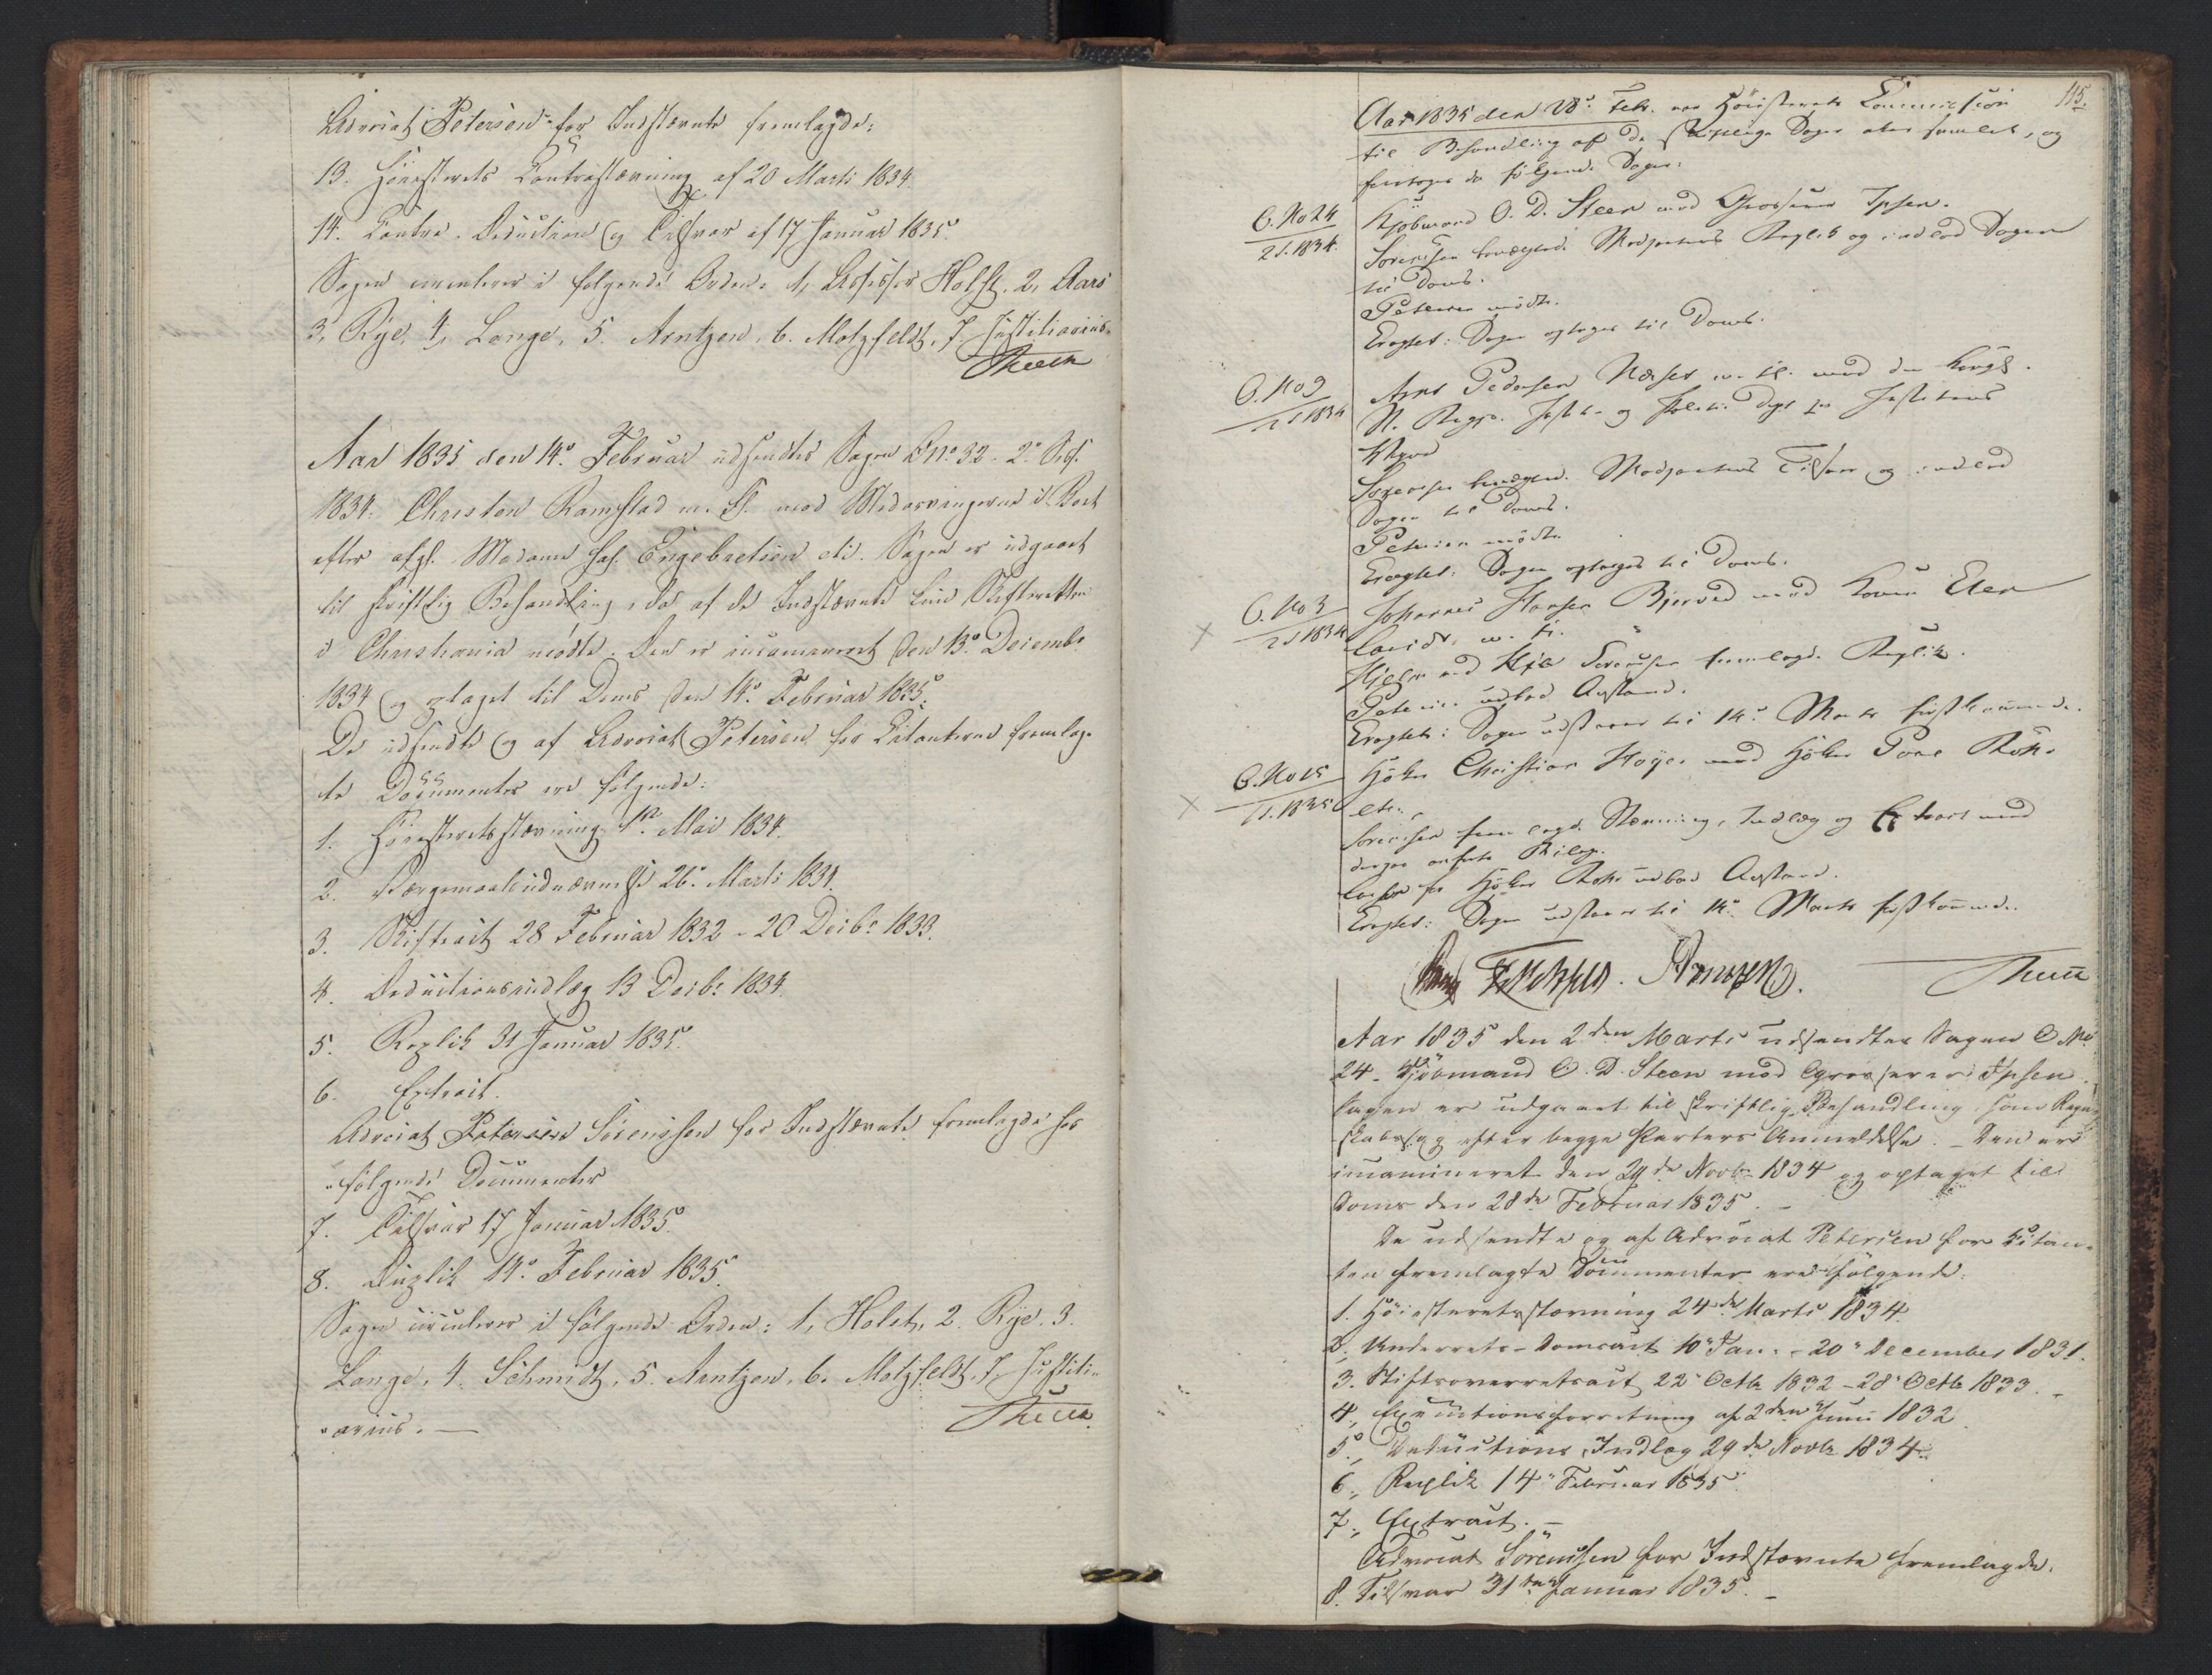 Advocat Petersen for Indstævnte fremlagde:
13. Höiesterets Contrastævning af 20 Marti 1834.
14. Contra-Deduction og Tilsvar af 17 Januar 1835.
Sagen circulerer i følgende Orden: 1, Assessor Holst. 2, Aars
3, Rye, 4, Lange, 5. Arntzen, 6. Motzfeldt, 7. Justitiarius.
Aar 1835 den 14de Februar udsendtes Sagen C No 32 - 2den Sess.
1834. Christen Ramstad m. fl. mod Medarvingerne i Boet
efter afg. Madame Engebretsen etc. Sagen er udgaaet
til skriftlig Behandling, da af de Indstævnte kun Skifteretten
i Christiania mödte. Den er incamineret den 13de Decembr
1834 og optaget til Doms den 14de Februar 1835.
De udsendte og af Advocat Petersen for Citanterne fremlag-
te Documenter ere følgende:
1. Höiesteretsstævning 1ste Mai 1834.
2. Værgemaalsudnævnelse 26de Marts 1834.
3. Skifteact 28 Februar 1832 - 20 Decbr 1833.
4. Deductionsindlæg 13 Decbr 1834.
5. Replik 31 Januar 1835.
6. Extract.
Advocat Petersen Sörenssen for Indstævnte fremlagde
følgende Documenter
7. Tilsvar 17 Januar 1835.
8. Duplik 14de Februar 1835.
Sagen circulerer i følgende Orden: 1, Holst, 2. Rye. 3.
Lange, 4. Schmidt, 5. Arntzen, 6. Motzfeldt, 7, Justiti-
arius. —
115.
Aar 1835 den 28de Febr. var Höiesterets Commission
til Behandling af de skriftlige Sager atter samlet, og
foretoges da følgende Sager:
C. No 24
2 S. 1834.
Kjöbmand O. D. Steen mod Grosserer Ipsen.
Sörensen Modpartens Replik og indlod Sagen
til Doms.
Petersen mödte.
Eragtet: Sagen optages til Doms.
C. No 9
1834
Pedersen m. fl. mod den kongl.
N. Regjr. Justits- og Politie Dept
Sörensen Modpartens Tilsvar og indlod
Sagen til Doms.
Petersen mödte
Eragtet: Sagen optages til Doms.
C. No 3
2 S 1834
Johannes Hansen Bjerved mod Konen Elen
m. fl.
Sörensen fremlagde Replik.
Petersen udbad Anstand.
Eragtet: Sagen udstaaer til 14de Marts förstkommende.
C. No 15
1 S. 1835
Höker Christian Höyer mod Höker Poul
etc.
Sörensen fremlagde Stævning, Indlæg og Extract med
Bilag.
for Höker udbad Anstand.
Eragtet: Sagen udstaaer til 14de Marts förstkommende.
Aar 1835 den 2den Marts udsendtes Sagen C No
24 - Kjöbmand O. D. Steen mod Grosserer Ipsen.
Sagen er udgaaet til skriftlig Behandling som Regn-
skabssag efter begge Parters Anmeldelse. - Den er
incamineret den 29de Novbr 1834 og optaget til
Doms den 28de Februar 1835. -
De udsendte og af Advocat Petersen for Citan-
ten fremlagte Documenter ere følgende:
1. Höiesteretsstævning 24de Marts 1834.
2, Underrets-Domsact 10 Jan. - 20 December 1831.
3. Stiftsoverretsact 22 Octbr 1832 - 28 Octbr 1833. -
4, Executionsforretning af 2den Juni 1832
5, Deductions Indlæg 29de Novbr 1834
6, Replik 14 Februar 1835
7, Extract. -
Advocat Sörenssen for Indstævnte fremlagde.
8. Tilsvar 31te Januar 1835. -